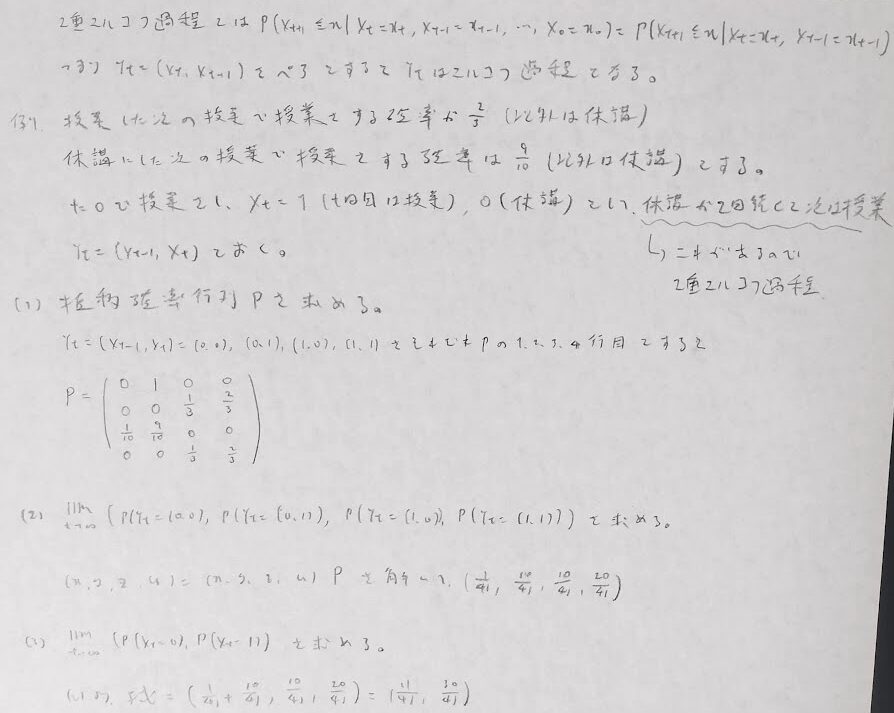 2重マルコフ過程とは P(X_{t+1} ≦ x | X_t = x_t, X_{t-1} = x_{t-1}, …, X_0 = x_0) = P(X_{t+1} ≦ x | X_t = x_t, X_{t-1} = x_{t-1})
つまり Y_t = (X_t, X_{t-1}) をペアとすると Y_t はマルコフ過程である。
例) 授業した次の授業で授業をする確率が 2/3 (以外は休講)
休講にした次の授業で授業をする確率は 9/10 (以外は休講) とする。
t=0で授業をし、X_t = 1 (t回目は授業), 0 (休講) として、休講が2回続くと次は授業
Y_t = (X_{t-1}, X_t) とおく。
↳ これがあるので
2重マルコフ過程
(1) 推移確率行列 P を求める。
Y_t = (X_{t-1}, X_t) = (0,0), (0,1), (1,0), (1,1) をそれぞれ P の 1, 2, 3, 4 行目とすると
P = ( 0 1 0 0
0 0 1/3 2/3
1/10 9/10 0 0
0 0 1/3 2/3 )
(2) lim_{t→∞} (P(Y_t = (0,0)), P(Y_t = (0,1)), P(Y_t = (1,0)), P(Y_t = (1,1))) を求める。
(x, y, z, u) = (x, y, z, u) P を解いて、(1/41, 10/41, 10/41, 20/41)
(3) lim_{t→∞} (P(X_t = 0), P(X_t = 1)) を求める。
(2)より, 与式 = (1/41 + 10/41, 10/41, 20/41) = (11/41, 30/41)